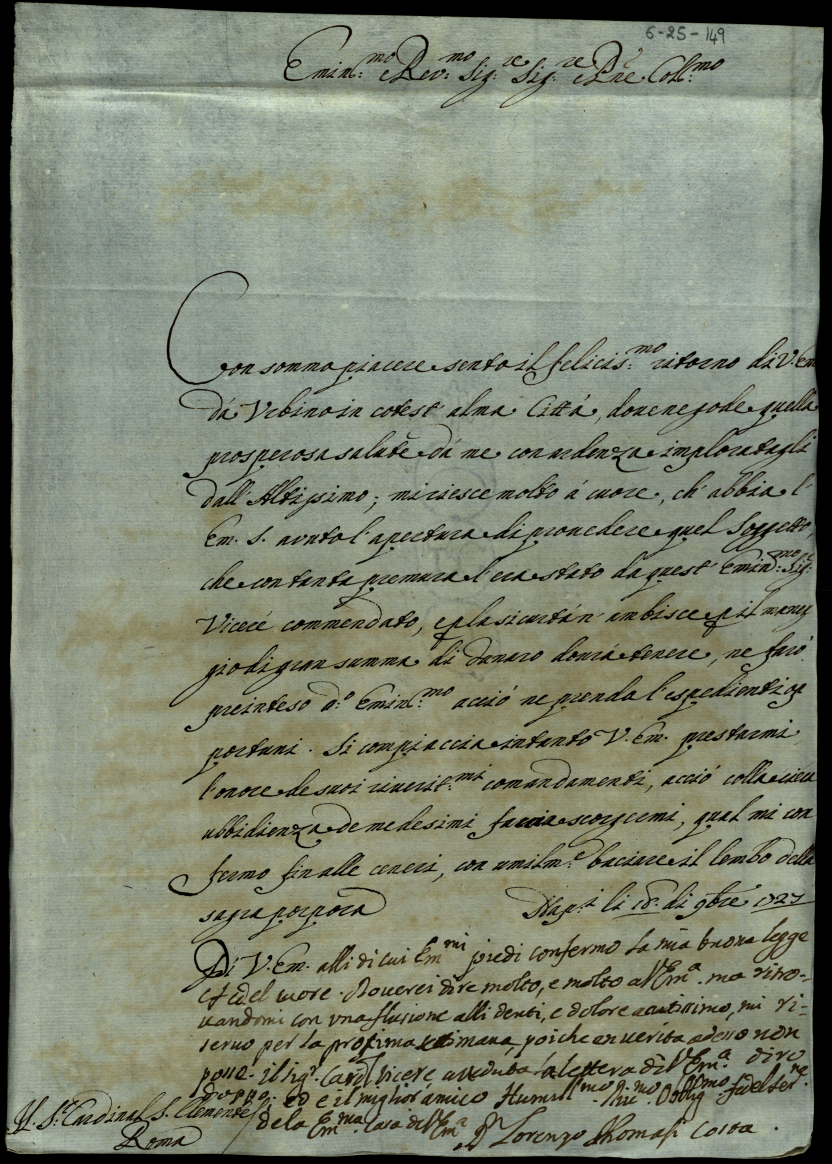 6-25-149
Emin.mo e Rev.mo Sig.re Sig.re e Pñe Coll.mo
Con sommo piacere sento il felicis.mo ritorno di V. Em.
dà Vrbino in cotest' alma Città, dove ne gode quella
prosperosa salute dà me con ardenza imploratagli
dall' Altissimo; mi riesce molto à cuore, ch' abbia l'
Em. S. avuto l' apertura di provedere quel Soggetto,
che con tanta premura l' era stato da quest' Emin.mo Sig.re
Viceré commendato, e p la sicurtà n' ambisce p il maneg
gio di gran summa di danaro dovrà tenere, ne farò
preinteso d.o Emin.mo acciò ne prenda l' espedienti op
portuni. Si compiaccia intanto V. Em. prestarmi
l' onore de suoi riverit.mi comandamenti, acciò colla cieca
ubbidienza de medesimi faccia scorgermi, qual mi con
fermo fin alle ceneri, con umilm.e baciare il lembo della
sagra porpora Nap.i li 18. di 9bre 1727
Di V. Em. alli di cui Em.mi piedi confermo la mia buona legge
et fedel cuore. Doverei dire molto, e molto a V. Em.a ma ritro-
vandomi con vna flusione alli denti, e dolore acutissimo, mi ri-
servo per la prossima settimana, poiche en verità adesso non
posso. il sig.r Card.l Vicere, a veduta la lettera di V. Em.a diro
doppo, ed e il miglior amico Humill.mo Oblig.mo fidel ser.re
de la Em.ma Casa di V. Em.a D.n Lorenzo Thomasi Costa.
S.r Cardinal S. Clemente
Roma